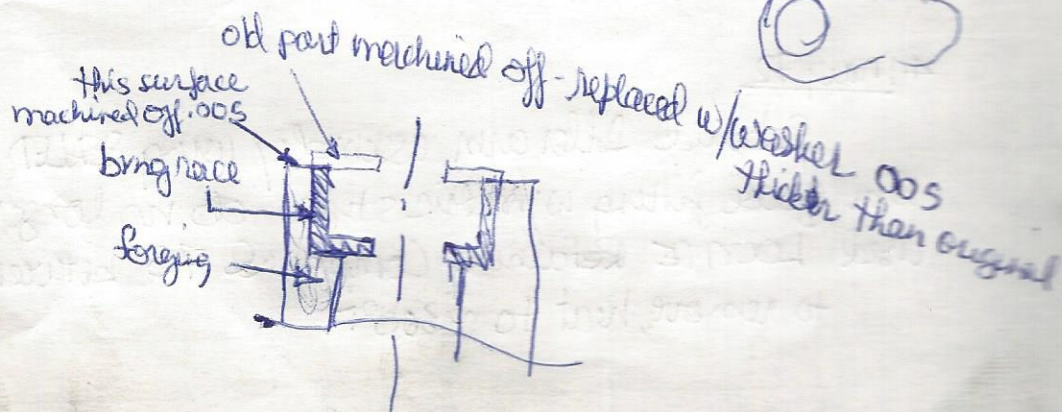 old part machined off - replaced w/washer .005
thicker than original
this surface
machined off .005
brng race
forging